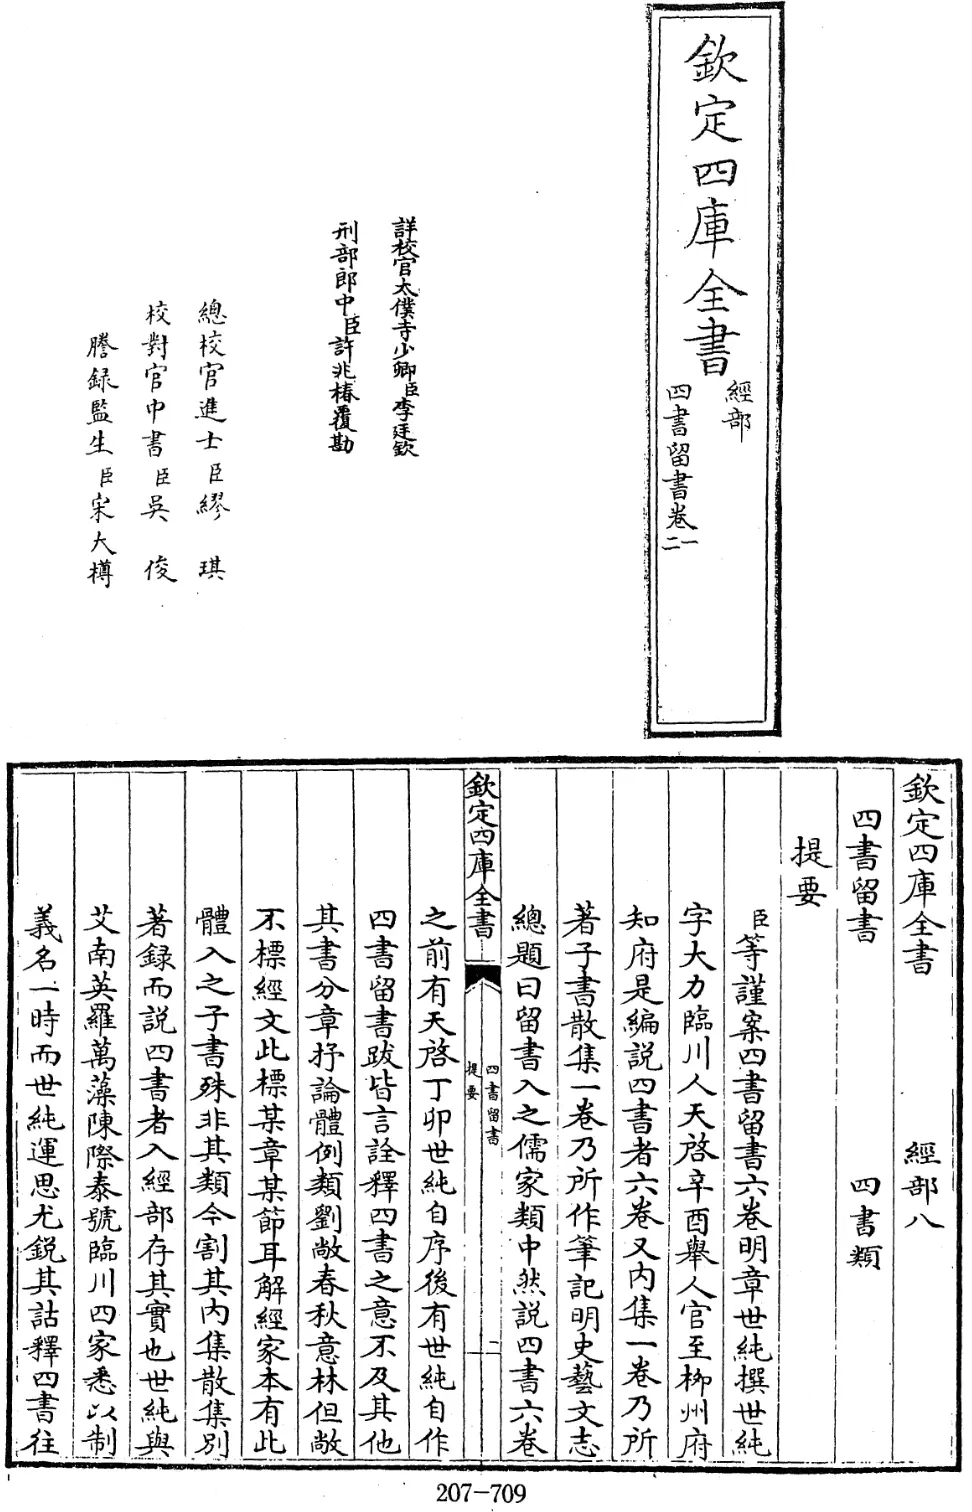 欽定四庫全書
經部
四書留書卷一
二
詳校官太僕寺少卿臣李廷欽
刑部郎中臣許兆椿覆勘
總校官進士臣繆琪
校對官中書臣吳俊
謄録監生臣宋大樽
欽定四庫全書 經部八
四書留書 四書類
提要
臣等謹案四書留書六卷明章世純撰世純
字大力臨川人天啓辛酉舉人官至柳州府
知府是編説四書者六卷又内集一卷乃所
著子書散集一卷乃所作筆記明史藝文志
總題曰留書入之儒家類中然説四書六卷
欽定四庫全書
四書留書
提要
一
之前有天啓丁卯世純自序後有世純自作
四書留書跋皆言詮釋四書之意不及其他
其書分章抒論體例類劉敞春秋意林但敞
不標經文此標某章某節耳解經家本有此
體入之子書殊非其類今割其内集散集别
著録而説四書者入經部存其實也世純與
艾南英羅萬藻陳際泰號臨川四家悉以制
義名一時而世純運思尤鋭其詁釋四書往
207-709